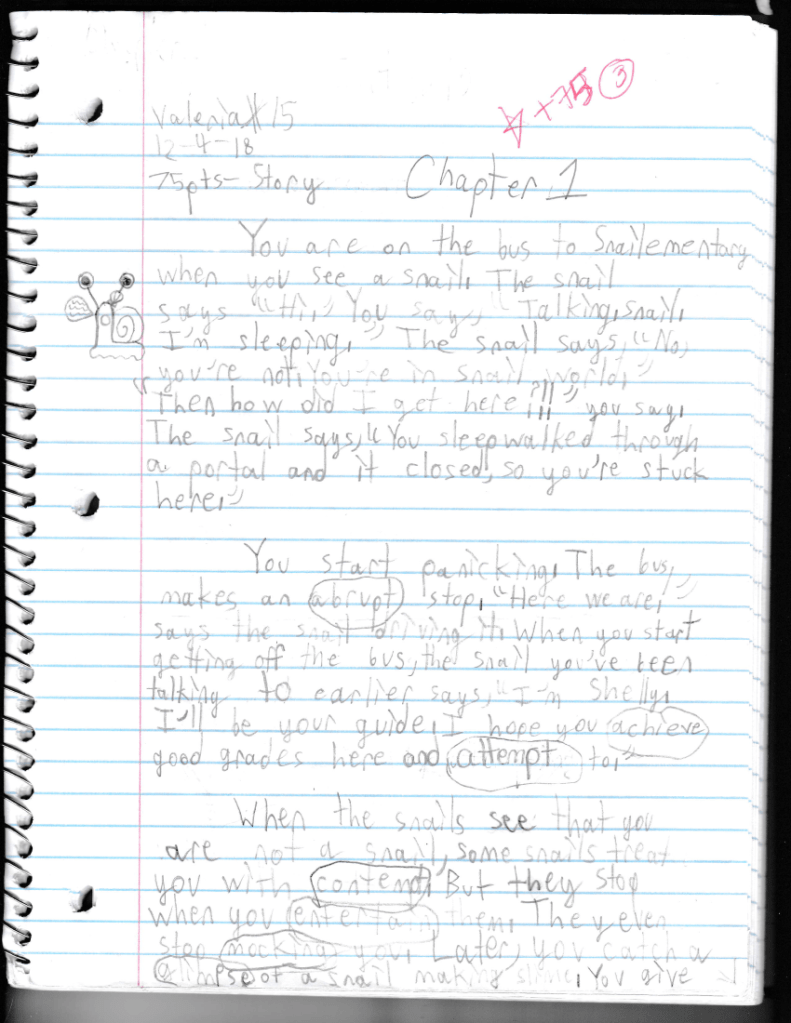 +75 3
Valenia #15
12-4-18
75pts- Story Chapter 1
You are on the bus to Snailementary
when you see a snail. The snail
says "Hi." You say, "Talking, snail.
I'm sleeping." The snail says, "No,
you're not. You're in snail world."
"Then how did I get here?!!!" you say.
The snail says, "You sleepwalked through
a portal and it closed, so you're stuck
here."
You start panicking. The bus,
makes an abrupt stop. "Here we are,"
says the snail driving it. When you start
getting off the bus, the snail you've been
talking to earlier says, "I'm Shelly.
I'll be your guide. I hope you achieve
good grades here and attempt to."
When the snails see that you
are not a snail, some snails treat
you with contempt. But they stop
when you entertain them. They even
stop mocking you. Later, you catch a
glimpse of a snail making slime. You give